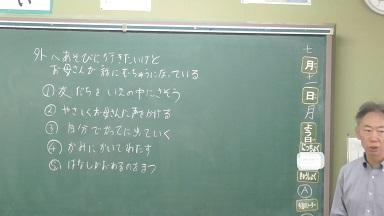 外へあそびに行きたいけど
お母さんが話にむちゅうになっている
①友だちをいえの中にさそう
②やさしくお母さんに声をかける
③自分でかってに出ていく
④かみにかいてわたす
⑤はなしがおわるのをまつ
七
月
十
一
日
月
よう日
にっちょく
きゅうしょく
A